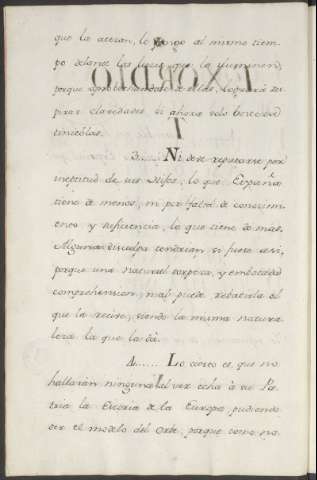 que la atezan, lo pongo al mismo tiem-
po delante las luces que la iluminan,
porque aprovechandose de ellas, logrará res-
pirar claridades, si ahora solo bosteza
tinieblas.
3...... Ni debe reputarse por
ineptitud de sus Hijos, lo que España
tiene de menos, ni por falta de conocimi-
ento y suficiencia, lo que tiene de mas.
Alguna disculpa tendrian, si fuese asi,
porque una natural torpeza, y embotada
comprehension, mal puede rebatirla el
que la recive; siendo la misma natura
leza la que la dá.
4...... Lo cierto es, que no
hallarán ninguna al ver echa à su Pa-
tria la Escoria de la Europa, pudiendo
ser el modelo del Orbe; porque como no